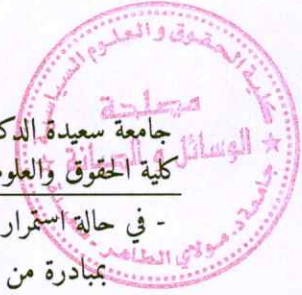 كلية الحقوق و العلوم السياسية
مصلحة
الوسائل و الصيانة
جامعة د. مولاي الطاهر
جامعة سعيدة الدك
كلية الحقوق والعلوم
- في حالة استمرار
بمبادرة من